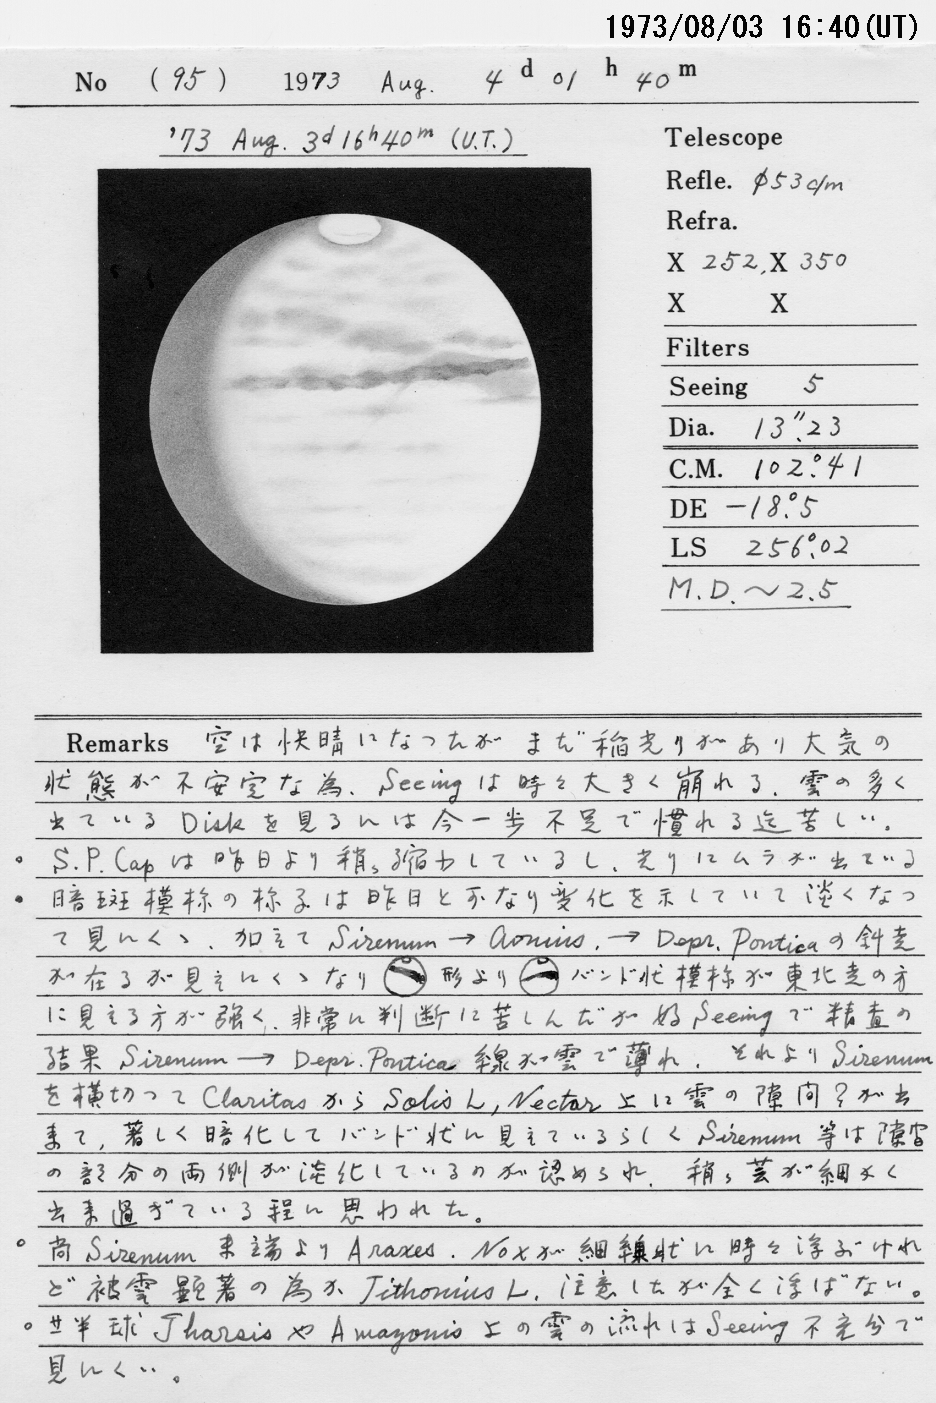 1973/08/03 16:40(UT)
No (95) 1973 Aug. 4 d 01 h 40 m
'73 Aug. 3d 16h 40m (U.T.)
Telescope
Refle. φ53c/m
Refra.
X 252, X 350
X X
Filters
Seeing 5
Dia. 13".23
C.M. 102°.41
DE -18°.5
LS 256°.02
M.D. ~2.5
Remarks 空は快晴になったが まだ稲光りがあり大気の
状態が不安定な為、Seeingは時々大きく崩れる。雲の多く
出ている Diskを見るには今一歩不足で慣れる迄苦しい。
。S.P.Capは昨日より稍々縮力しているし、光りにムラが出ている
・暗斑模様の様子は昨日とかなり変化を示していて淡くなっ
て見にくゝ、加えて Sirenum → Aonius. → Depr. Ponticaの斜走
が在るが見えにくゝなり 形より バンド状模様が東北走の方
に見える方が強く、非常に判断に苦しんだが好Seeingで精査の
結果 Sirenum → Depr. Pontica 線が雲で薄れ、それより Sirenum
を横切って Claritas から Solis L, Nectar 上に雲の隙間?が出
来て、著しく暗化してバンド状に見えているらしく Sirenum 等は隙雲
の部分の両側が淡化しているのが認められ、稍々芸が細かく
出来過ぎている程に思われた。
。尚 Sirenum 末端より Araxes. Noxが細線状に時々浮ぶけれ
ど被雲顕著の為か Tithonius L. 注意したが全く浮ばない。
。北半球 Tharsis や Amazonis 上の雲の流れは Seeing 不充分で
見にくい。